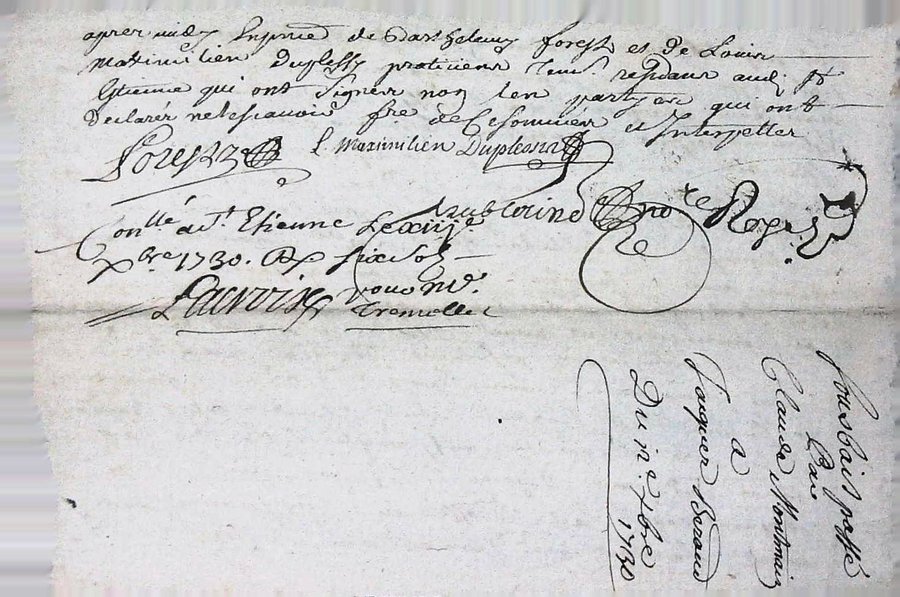 apres midy En presence de Barthelemy forest et de Louis
Maximilien Duplessy praticiens tems. residans audt. St
Etienne qui ont Signes non les partyes qui ont
Declarés ne le scavoir fre de Ce sommées et Interpellées
Forest
L. Maximilien Duplessis
nore Royal
Conllé a St. Etienne Le xiije
Xbre 1730. Rx six sols
Lacroix
pour Mr.
Tremollet
sousbail passé
Par
Claude Montmaiz
a
Jacques Beraud
Du me. xbre
1730